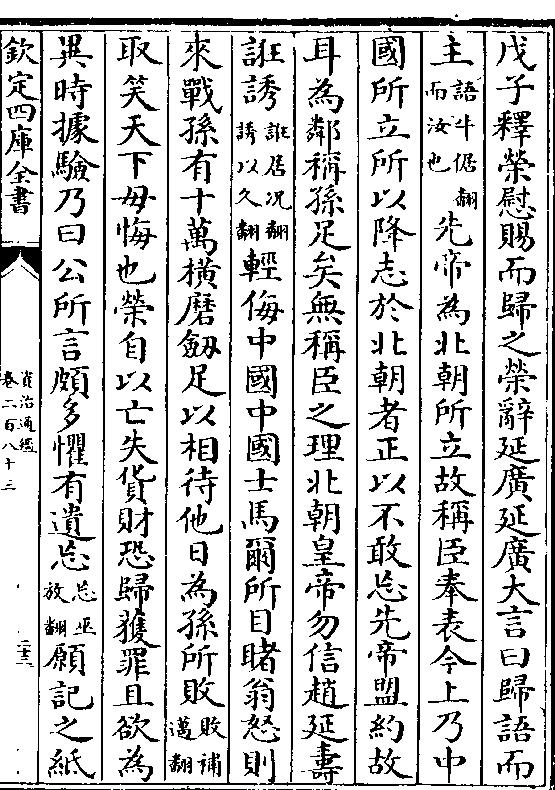 戊子釋榮慰賜而歸之榮辭延廣延廣大言曰歸語而
主語牛倨翻而汝也先帝為北朝所立故稱臣奉表今上乃中
國所立所以降志於北朝者正以不敢忘先帝盟約故
耳為鄰稱孫足矣無稱臣之理北朝皇帝勿信趙延壽
誑誘誑居况翻誘以久翻輕侮中國中國士馬爾所目睹翁怒則
來戰孫有十萬橫磨劔足以相待他日為孫所敗敗補邁翻
取笑天下毋悔也榮自以亡失貨財恐歸獲罪且欲為
異時據驗乃曰公所言頗多懼有遺忘忘巫放翻願記之紙
欽定四庫全書
資治通鑑
卷二百八十三
二十三